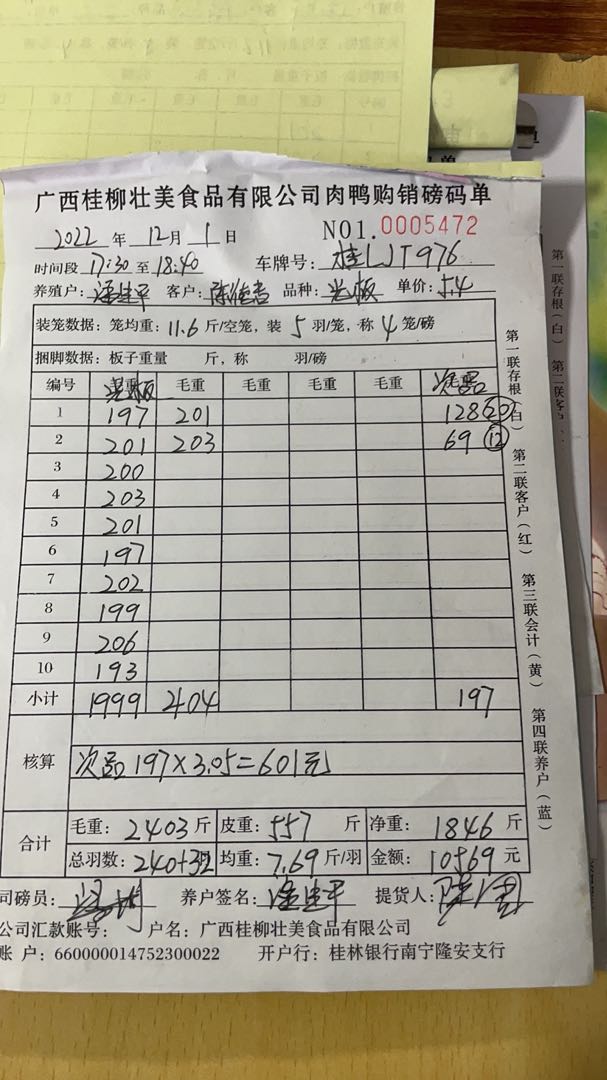 广西桂柳壮美食品有限公司肉鸭购销磅码单
2022 年 12 月 1 日 NO1. 0005472
时间段 17:30 至 18:40 车牌号: 桂LJT976
养殖户: 客户: 品种: 光板 单价: 5.4
装笼数据: 笼均重: 11.6 斤/空笼, 装 5 羽/笼, 称 4 笼/磅
捆脚数据: 板子重量 斤, 称 羽/磅
编号 光板 毛重 毛重 毛重 毛重 次品
1 197 201 128 20
2 201 203 69 12
3 200
4 203
5 201
6 197
7 202
8 199
9 206
10 193
小计 1999 404 197
核算 次品197×3.05=601元
合计 毛重: 2403 斤 皮重: 557 斤 净重: 1846 斤
总羽数: 240+32 均重: 7.69 斤/羽 金额: 10569 元
司磅员: 养户签名: 提货人:
公司汇款账号: 户名: 广西桂柳壮美食品有限公司
账 户: 660000014752300022 开户行: 桂林银行南宁隆安支行
第一联存根(白) 第二联客户(红) 第三联会计(黄) 第四联养户(蓝)
第一联存根(白) 第二联客